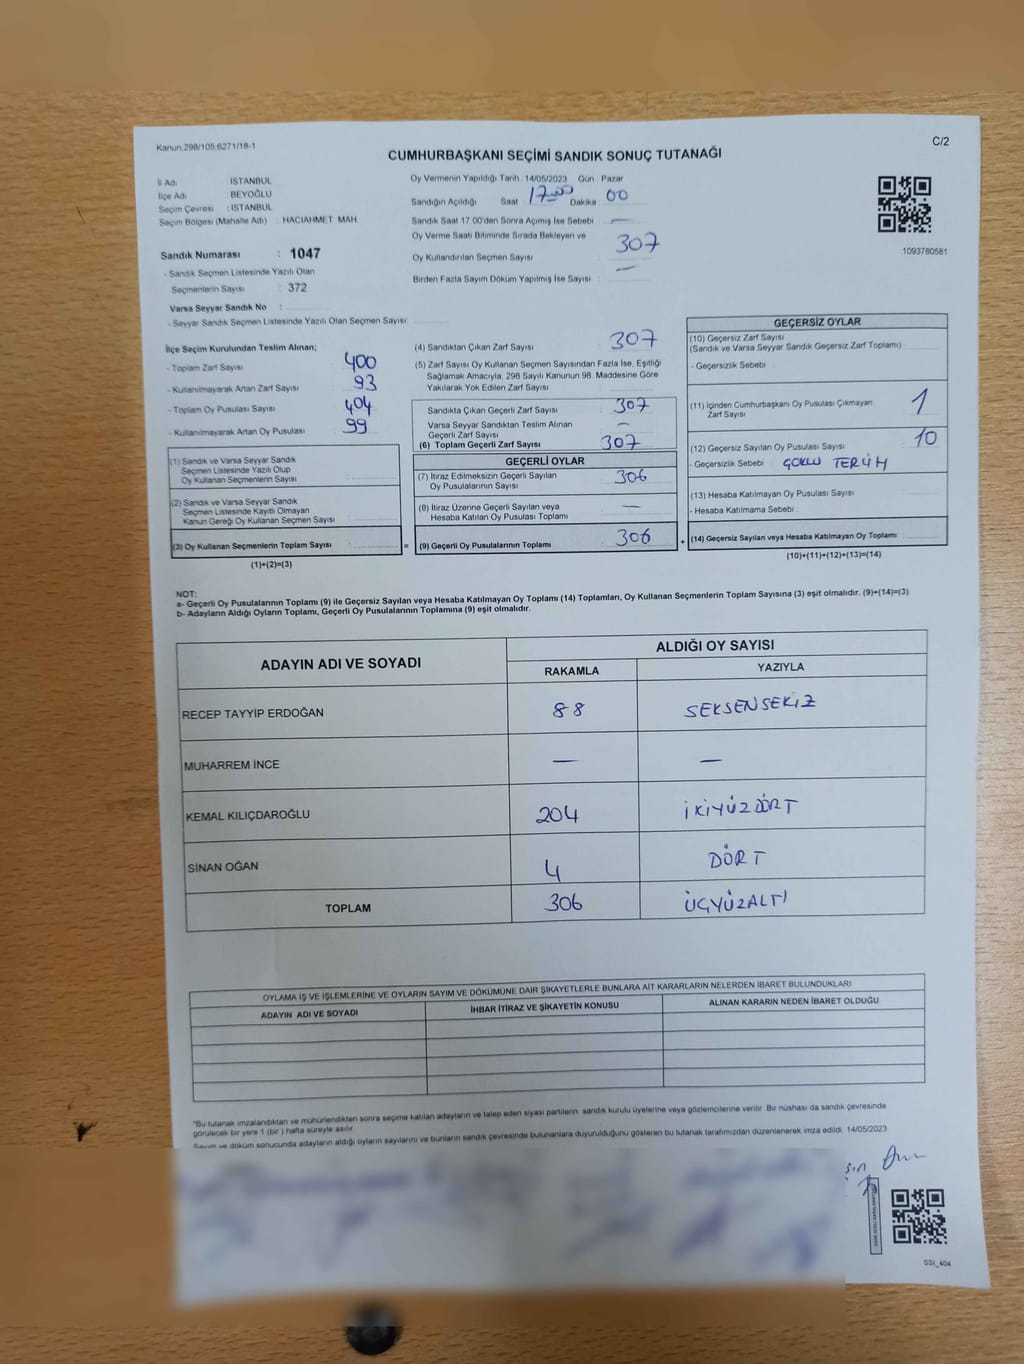 Kanun:298/105;6271/18-1
C/2
CUMHURBAŞKANI SEÇİMİ SANDIK SONUÇ TUTANAĞI
İl Adı : İSTANBUL
İlçe Adı : BEYOĞLU
Seçim Çevresi : İSTANBUL
Seçim Bölgesi (Mahalle Adı) : HACIAHMET MAH.
Sandık Numarası : 1047
- Sandık Seçmen Listesinde Yazılı Olan
Seçmenlerin Sayısı : 372
Varsa Seyyar Sandık No :
- Seyyar Sandık Seçmen Listesinde Yazılı Olan Seçmen Sayısı:
Oy Vermenin Yapıldığı Tarih :14/05/2023 Gün : Pazar
Sandığın Açıldığı Saat : 17:00 Dakika : 00
Sandık Saat 17.00'den Sonra Açımış İse Sebebi : —
Oy Verme Saati Bitiminde Sırada Bekleyen ve
Oy Kullandırılan Seçmen Sayısı : 307
Birden Fazla Sayım Döküm Yapılmış İse Sayısı : —
1093780581
İlçe Seçim Kurulundan Teslim Alınan;
- Toplam Zarf Sayısı : 400
- Kullanılmayarak Artan Zarf Sayısı : 93
- Toplam Oy Pusulası Sayısı : 404
- Kullanılmayarak Artan Oy Pusulası : 99
(1) Sandık ve Varsa Seyyar Sandık
Seçmen Listesinde Yazılı Olup
Oy Kullanan Seçmenlerin Sayısı :
(2) Sandık ve Varsa Seyyar Sandık
Seçmen Listesinde Kayıtlı Olmayan
Kanun Gereği Oy Kullanan Seçmen Sayısı :
(3) Oy Kullanan Seçmenlerin Toplam Sayısı :
(1)+(2)=(3)
=
(4) Sandıktan Çıkan Zarf Sayısı : 307
(5) Zarf Sayısı Oy Kullanan Seçmen Sayısından Fazla İse, Eşitliği
Sağlamak Amacıyla, 298 Sayılı Kanunun 98. Maddesine Göre
Yakılarak Yok Edilen Zarf Sayısı :
Sandıkta Çıkan Geçerli Zarf Sayısı : 307
Varsa Seyyar Sandıktan Teslim Alınan
Geçerli Zarf Sayısı : —
(6) Toplam Geçerli Zarf Sayısı : 307
GEÇERLİ OYLAR
(7) İtiraz Edilmeksizin Geçerli Sayılan
Oy Pusulalarının Sayısı : 306
(8) İtiraz Üzerine Geçerli Sayılan veya
Hesaba Katılan Oy Pusulası Toplamı : —
(9) Geçerli Oy Pusulalarının Toplamı : 306
+
GEÇERSİZ OYLAR
(10) Geçersiz Zarf Sayısı
(Sandık ve Varsa Seyyar Sandık Geçersiz Zarf Toplamı)
- Geçersizlik Sebebi :
(11) İçinden Cumhurbaşkanı Oy Pusulası Çıkmayan
Zarf Sayısı : 1
(12) Geçersiz Sayılan Oy Pusulası Sayısı : 10
- Geçersizlik Sebebi : ÇOKLU TERCİH
(13) Hesaba Katılmayan Oy Pusulası Sayısı :
- Hesaba Katılmama Sebebi :
(14) Geçersiz Sayılan veya Hesaba Katılmayan Oy Toplamı :
(10)+(11)+(12)+(13)=(14)
NOT:
a- Geçerli Oy Pusulalarının Toplamı (9) ile Geçersiz Sayılan veya Hesaba Katılmayan Oy Toplamı (14) Toplamları, Oy Kullanan Seçmenlerin Toplam Sayısına (3) eşit olmalıdır. (9)+(14)=(3)
b- Adayların Aldığı Oyların Toplamı, Geçerli Oy Pusulalarının Toplamına (9) eşit olmalıdır.
ADAYIN ADI VE SOYADI
ALDIĞI OY SAYISI
RAKAMLA YAZIYLA
RECEP TAYYİP ERDOĞAN 88 SEKSENSEKİZ
MUHARREM İNCE — —
KEMAL KILIÇDAROĞLU 204 İKİYÜZDÖRT
SİNAN OĞAN 4 DÖRT
TOPLAM 306 ÜÇYÜZALTI
OYLAMA İŞ VE İŞLEMLERİNE VE OYLARIN SAYIM VE DÖKÜMÜNE DAİR ŞİKAYETLERLE BUNLARA AİT KARARLARIN NELERDEN İBARET BULUNDUKLARI
ADAYIN ADI VE SOYADI İHBAR İTİRAZ VE ŞİKAYETİN KONUSU ALINAN KARARIN NEDEN İBARET OLDUĞU
"Bu tutanak imzalandıktan ve mühürlendikten sonra seçime katılan adayların ve talep eden siyasi partilerin sandık kurulu üyelerine veya gözlemcilerine verilir. Bir nüshası da sandık çevresinde
görülecek bir yere 1 (bir ) hafta süreyle asılır.
Sayım ve döküm sonucunda adayların aldığı oyların sayılarını ve bunların sandık çevresinde bulunanlara duyurulduğunu gösteren bu tutanak tarafımızdan düzenlenerek imza edildi. 14/05/2023
SSI_404